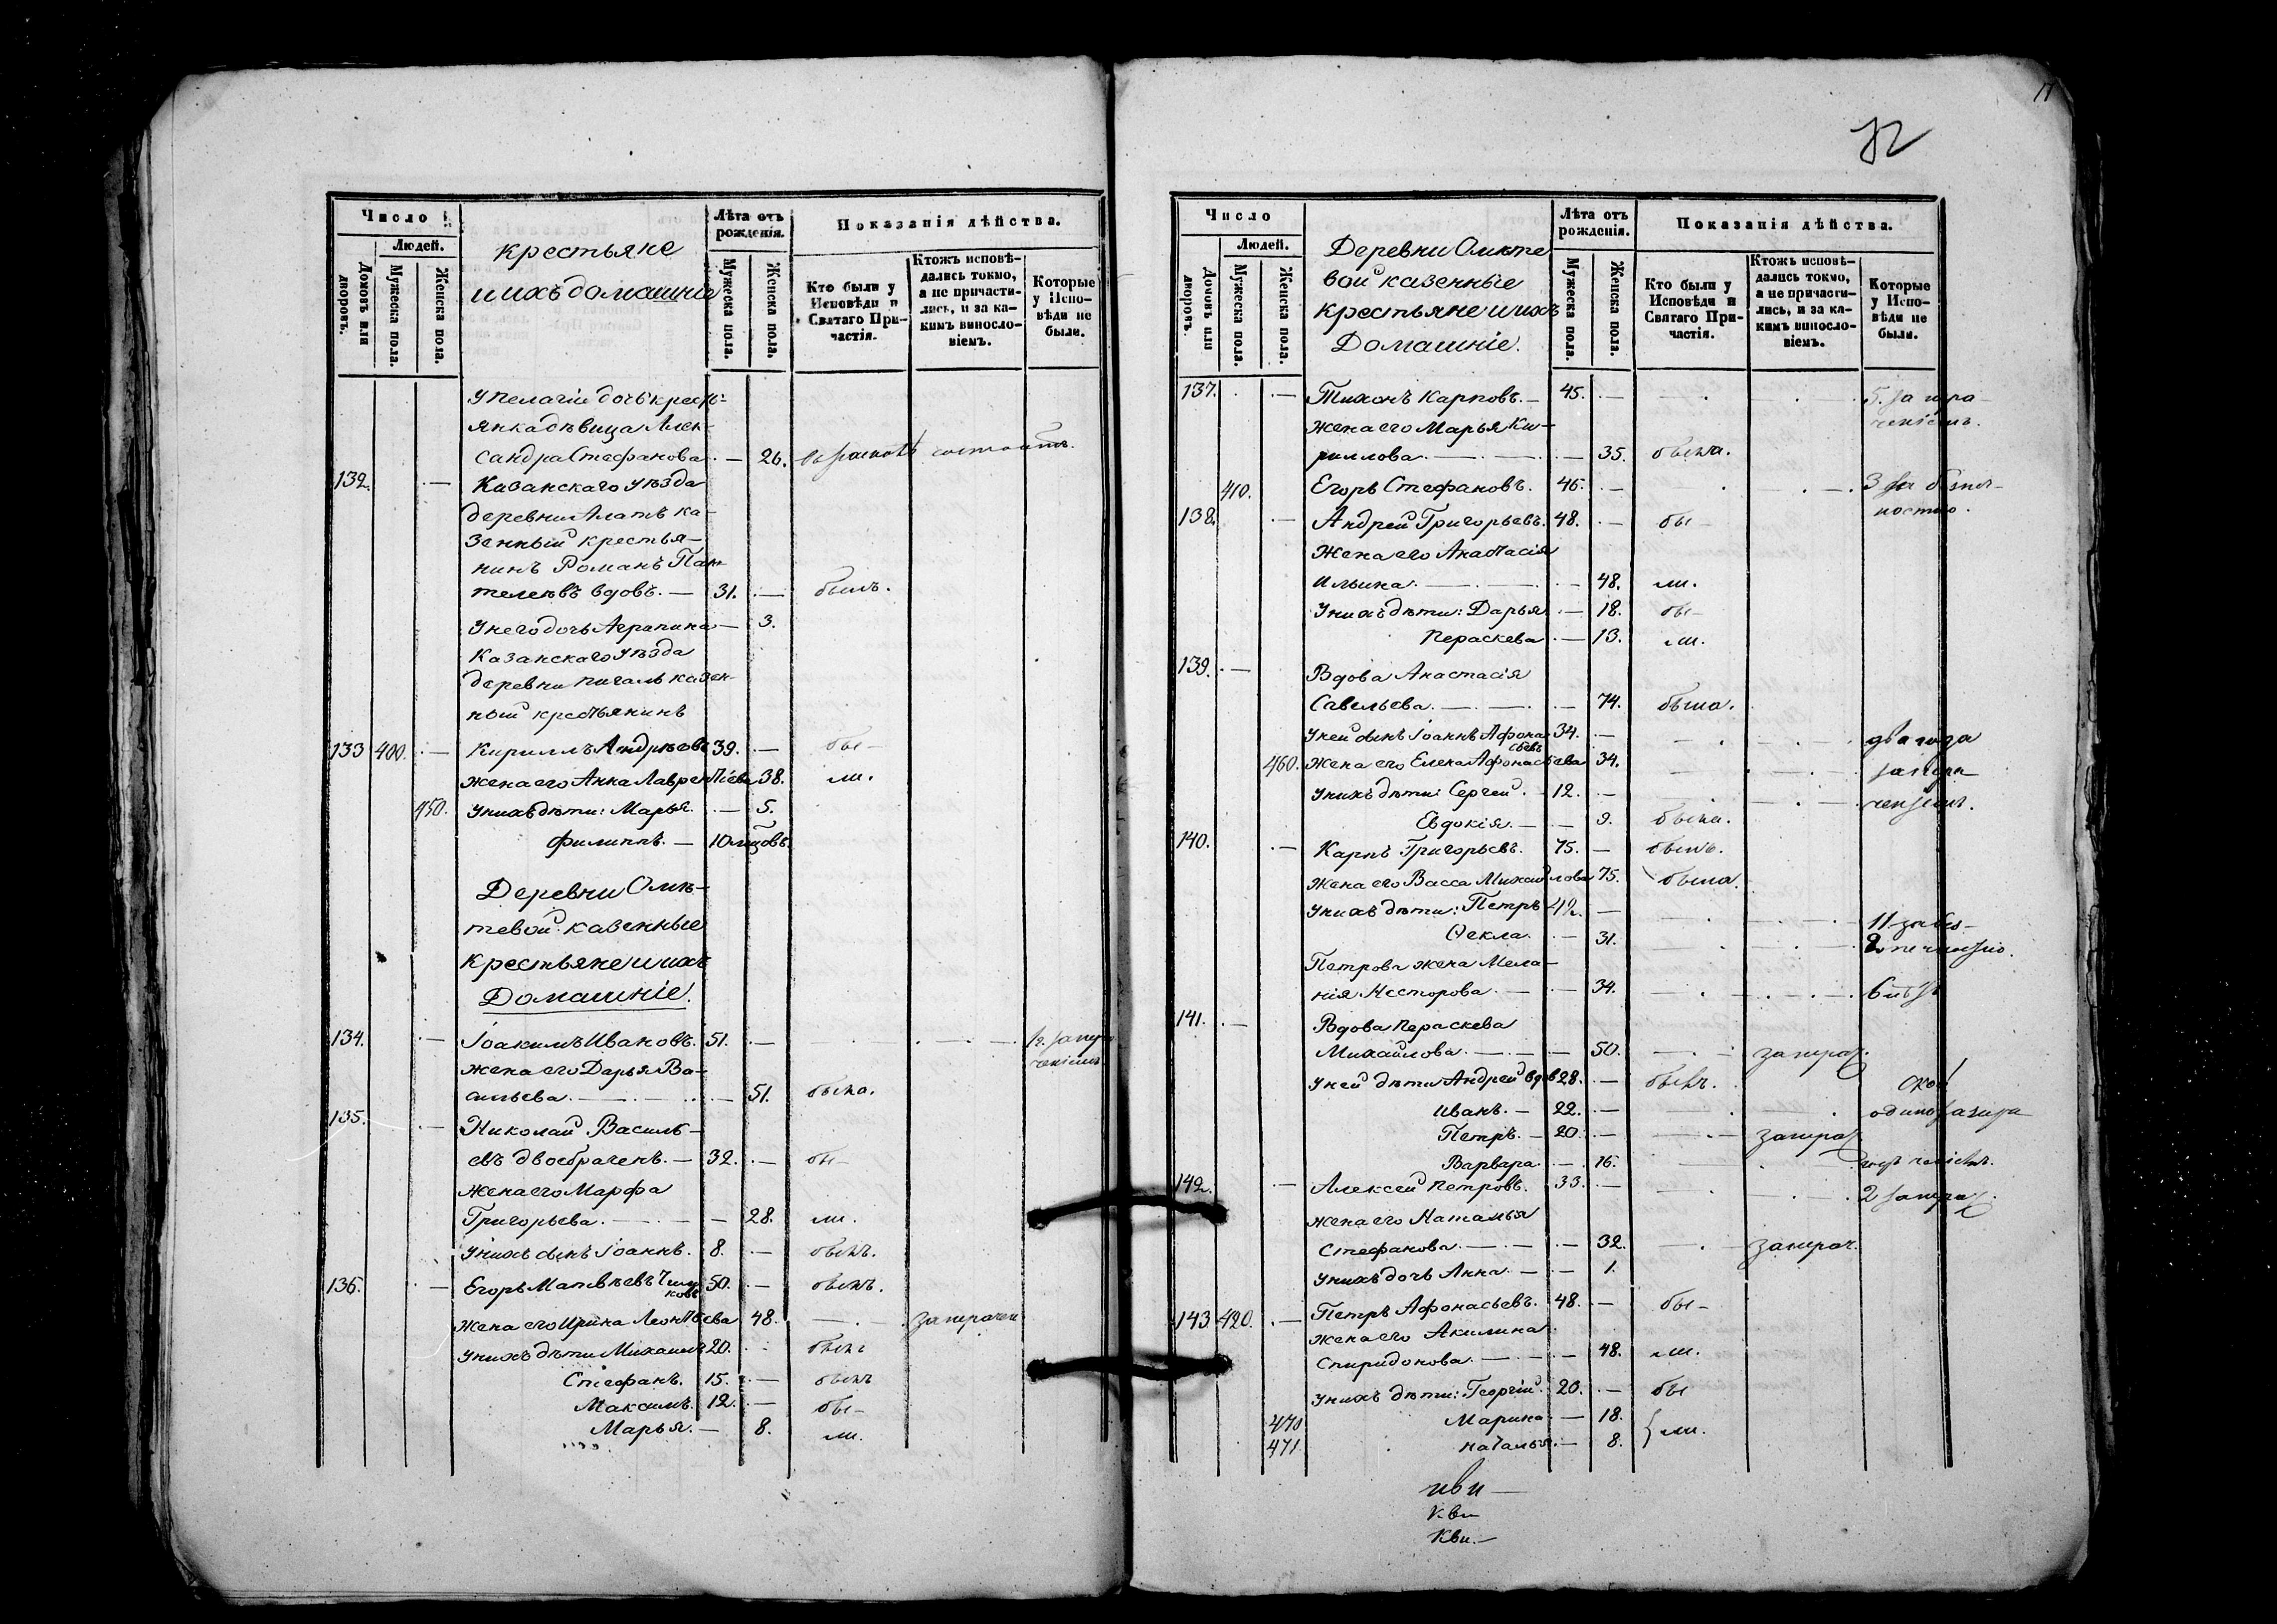 Число
Людей.
Домовъ или дворовъ.
Мужеска пола.
Женска пола.
крестьяне
и ихъ домашніе
Лѣта отъ рожденія.
Мужеска пола.
Женска пола.
Показанія дѣйства.
Кто были у Исповѣди и Святаго Причастія.
Ктожъ исповѣдались токмо, а не причастились, и за какимъ винословіемъ.
Которые у Исповѣди не были.
У Пелагіи дочь кресть-
янка дѣвица Алек-
сандра Стефанова . — 26. въ расколѣ состоитъ.
132. — Казанскаго уѣзда
деревни Алатъ ка-
зенный крестья-
нинъ Романъ Пан-
телеевъ вдовъ. — 31. — былъ.
У него дочь Агрипина — 3.
Казанскаго уѣзда
деревни Кигаль казен-
ный крестьянинъ
133 400. — Кириллъ Андрѣевъ 39. — бы-
жена его Анна Лаврентіева 38. ли.
450. У нихъ дѣти: Марья. — 5.
Филиппъ. — 10 мѣсцовъ.
Деревни Омѣ-
тевой казенные
крестьяне и ихъ
Домашніе.
134. — Іоакимъ Ивановъ. 51. — 12. за нера-
ченіемъ.
жена его Дарья Ва-
сильева. — 51. была.
135. — Николай Василь-
евъ двоебраченъ. — 32. — бы-
жена его Марфа
Григорьева. — 28. ли.
У нихъ сынъ Іоаннъ. 8. — былъ.
136. — Егоръ Матвѣевъ 50. — былъ.
жена его Ирина Леонтьева 48. — за нерачен
У нихъ дѣти Михаилъ 20. былъ
Стефанъ. 15. — былъ
Максимъ. 12. — бы-
Марья. — 8. ли.
17
Число
Людей.
Домовъ или дворовъ.
Мужеска пола.
Женска пола.
Деревни Омѣте
вой казенные
крестьяне и ихъ
Домашніе.
Лѣта отъ рожденія.
Мужеска пола.
Женска пола.
Показанія дѣйства.
Кто были у Исповѣди и Святаго Причастія.
Ктожъ исповѣдались токмо, а не причастились, и за какимъ винословіемъ.
Которые у Исповѣди не были.
137. — Тихонъ Карповъ. — 45. — 5. за нера-
ченіемъ.
жена его Марья Ки-
риллова. — 35. была.
410. Егоръ Стефановъ. 46. — 3 за безпеч-
ностію.
138. — Андрей Григорьевъ. 48. — бы-
жена его Анастасія
Ильина. — 48. ли.
У нихъ дѣти: Дарья — 18. бы-
Пераскева — 13. ли.
139. — Вдова Анастасія
Савельева. — 74. была.
У ней сынъ Іоаннъ Афона-
сьевъ 34. — два года
460. жена его Елена Афонасьева 34. за нера-
У нихъ дѣти: Сергей. — 12. — ченіемъ.
Евдокія. — 9. была.
140. — Карпъ Григорьевъ. 75. — былъ.
жена его Васса Михайлова 75. была.
У нихъ дѣти: Петръ 42. — 11 за без-
Ѳекла. — 31. печностію.
Петрова жена Мела-
нія Несторова. — 34. 6
141. — Вдова Пераскева
Михайлова. — 50. — за нерач.
У ней дѣти Андрей вдов 28. — былъ.
Иванъ. — 22. — одинъ за нера
Петръ. — 20. — за нерач.
Варвара. — 16.
142. — Алексей Петровъ. 33. — 2 за нерач.
жена его Наталья
Стефанова. — 32. — за нерач.
У нихъ дочь Анна. — 1.
143 420. — Петръ Афонасьевъ. 48. — бы-
жена его Акилина
Спиридонова. — 48. ли.
У нихъ дѣти: Георгій. 20. — бы
470 Марина — 18.
471 Наталья. — 8. ли.